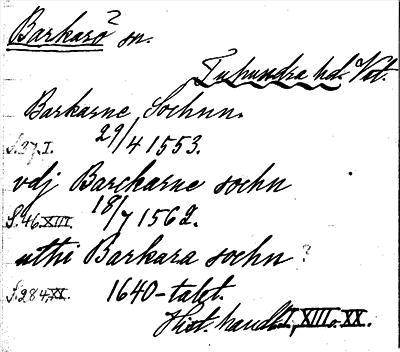 Barkarö? sn.
Tuhundra hd. Vst.
Barkarne Sochnn.
S. 27, I. 29/4 1553.
vdj Barckarne sochn
S. 46. XIII. 18/7 1562.
uthi Barkara sochn ?
S. 284, XX. 1640-talet.
Hist. handl. I, XIII o. XX.